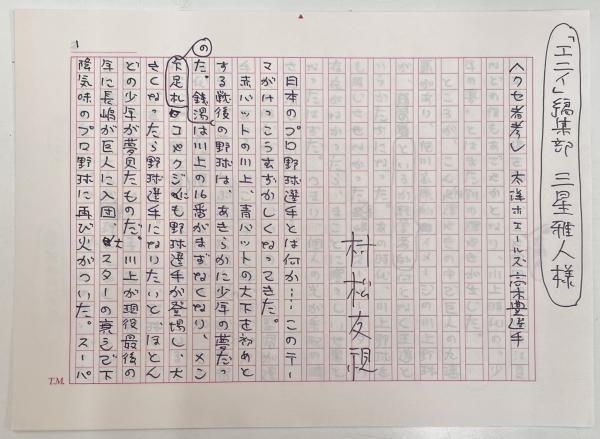 「エニイ」編集部 三星雅人様
クセ者考 大洋ホエールズ・高木豊選手
村松友視
日本のプロ野球選手とは何か……このテー
マがけっこうむずかしくなってきた。
赤バットの川上、青バットの大下を初めと
する戦後の野球は、あきらかに少年の夢だっ
た。銭湯の下足札は川上の16番がまずなくなり、メン
コやクジにも野球選手が登場し、大
きくなったら野球選手になりたいと、ほとん
どの少年が夢見たものだ。川上が現役最後の
年に長嶋が巨人に入団、大スターの衰えで下
降気味のプロ野球に再び火がついた。スーパ
1
T.M.